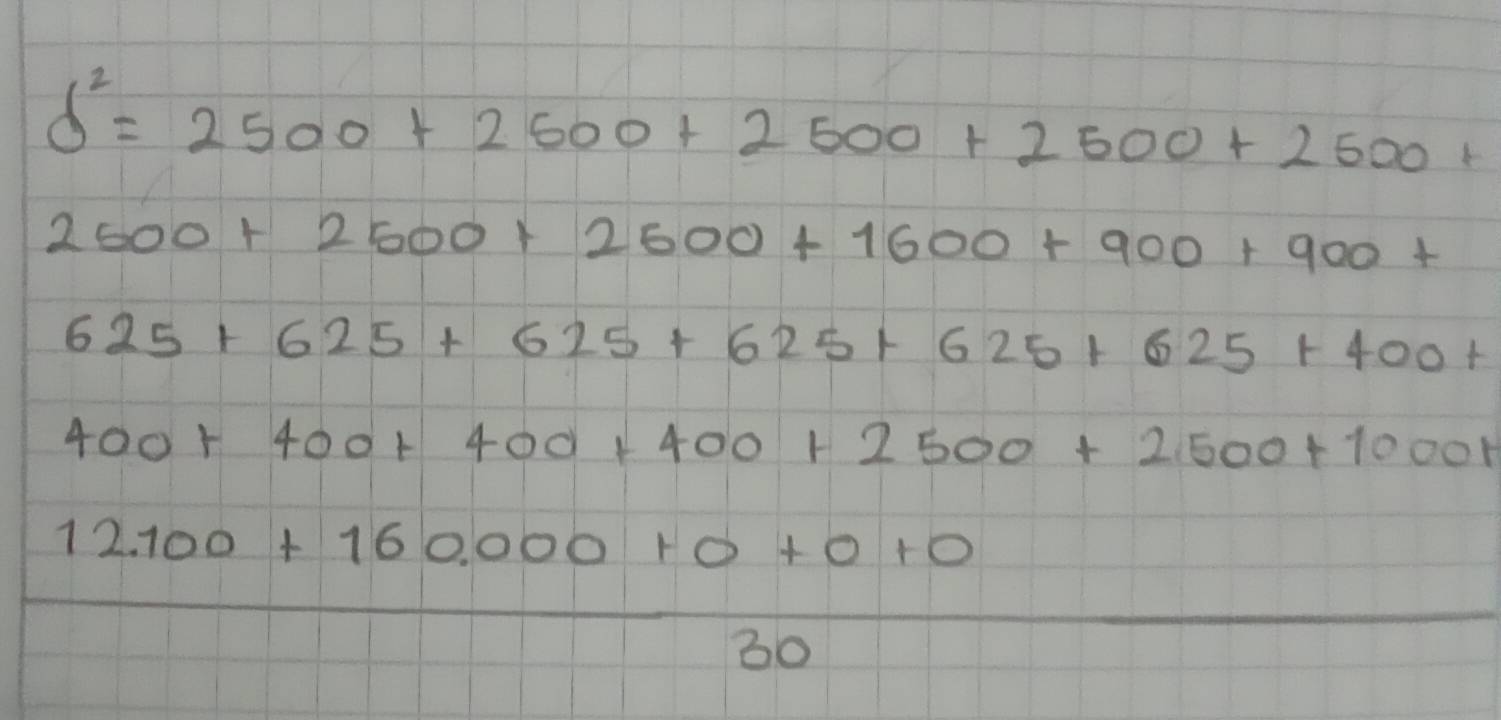 δ² = 2500 + 2500 + 2500 + 2500 + 2500 +
2500 + 2500 + 2500 + 1600 + 900 + 900 +
625 + 625 + 625 + 625 + 625 + 625 + 400 +
400 + 400 + 400 + 400 + 2500 + 2500 + 1000 +
12.100 + 160.000 + 0 + 0 + 0
30